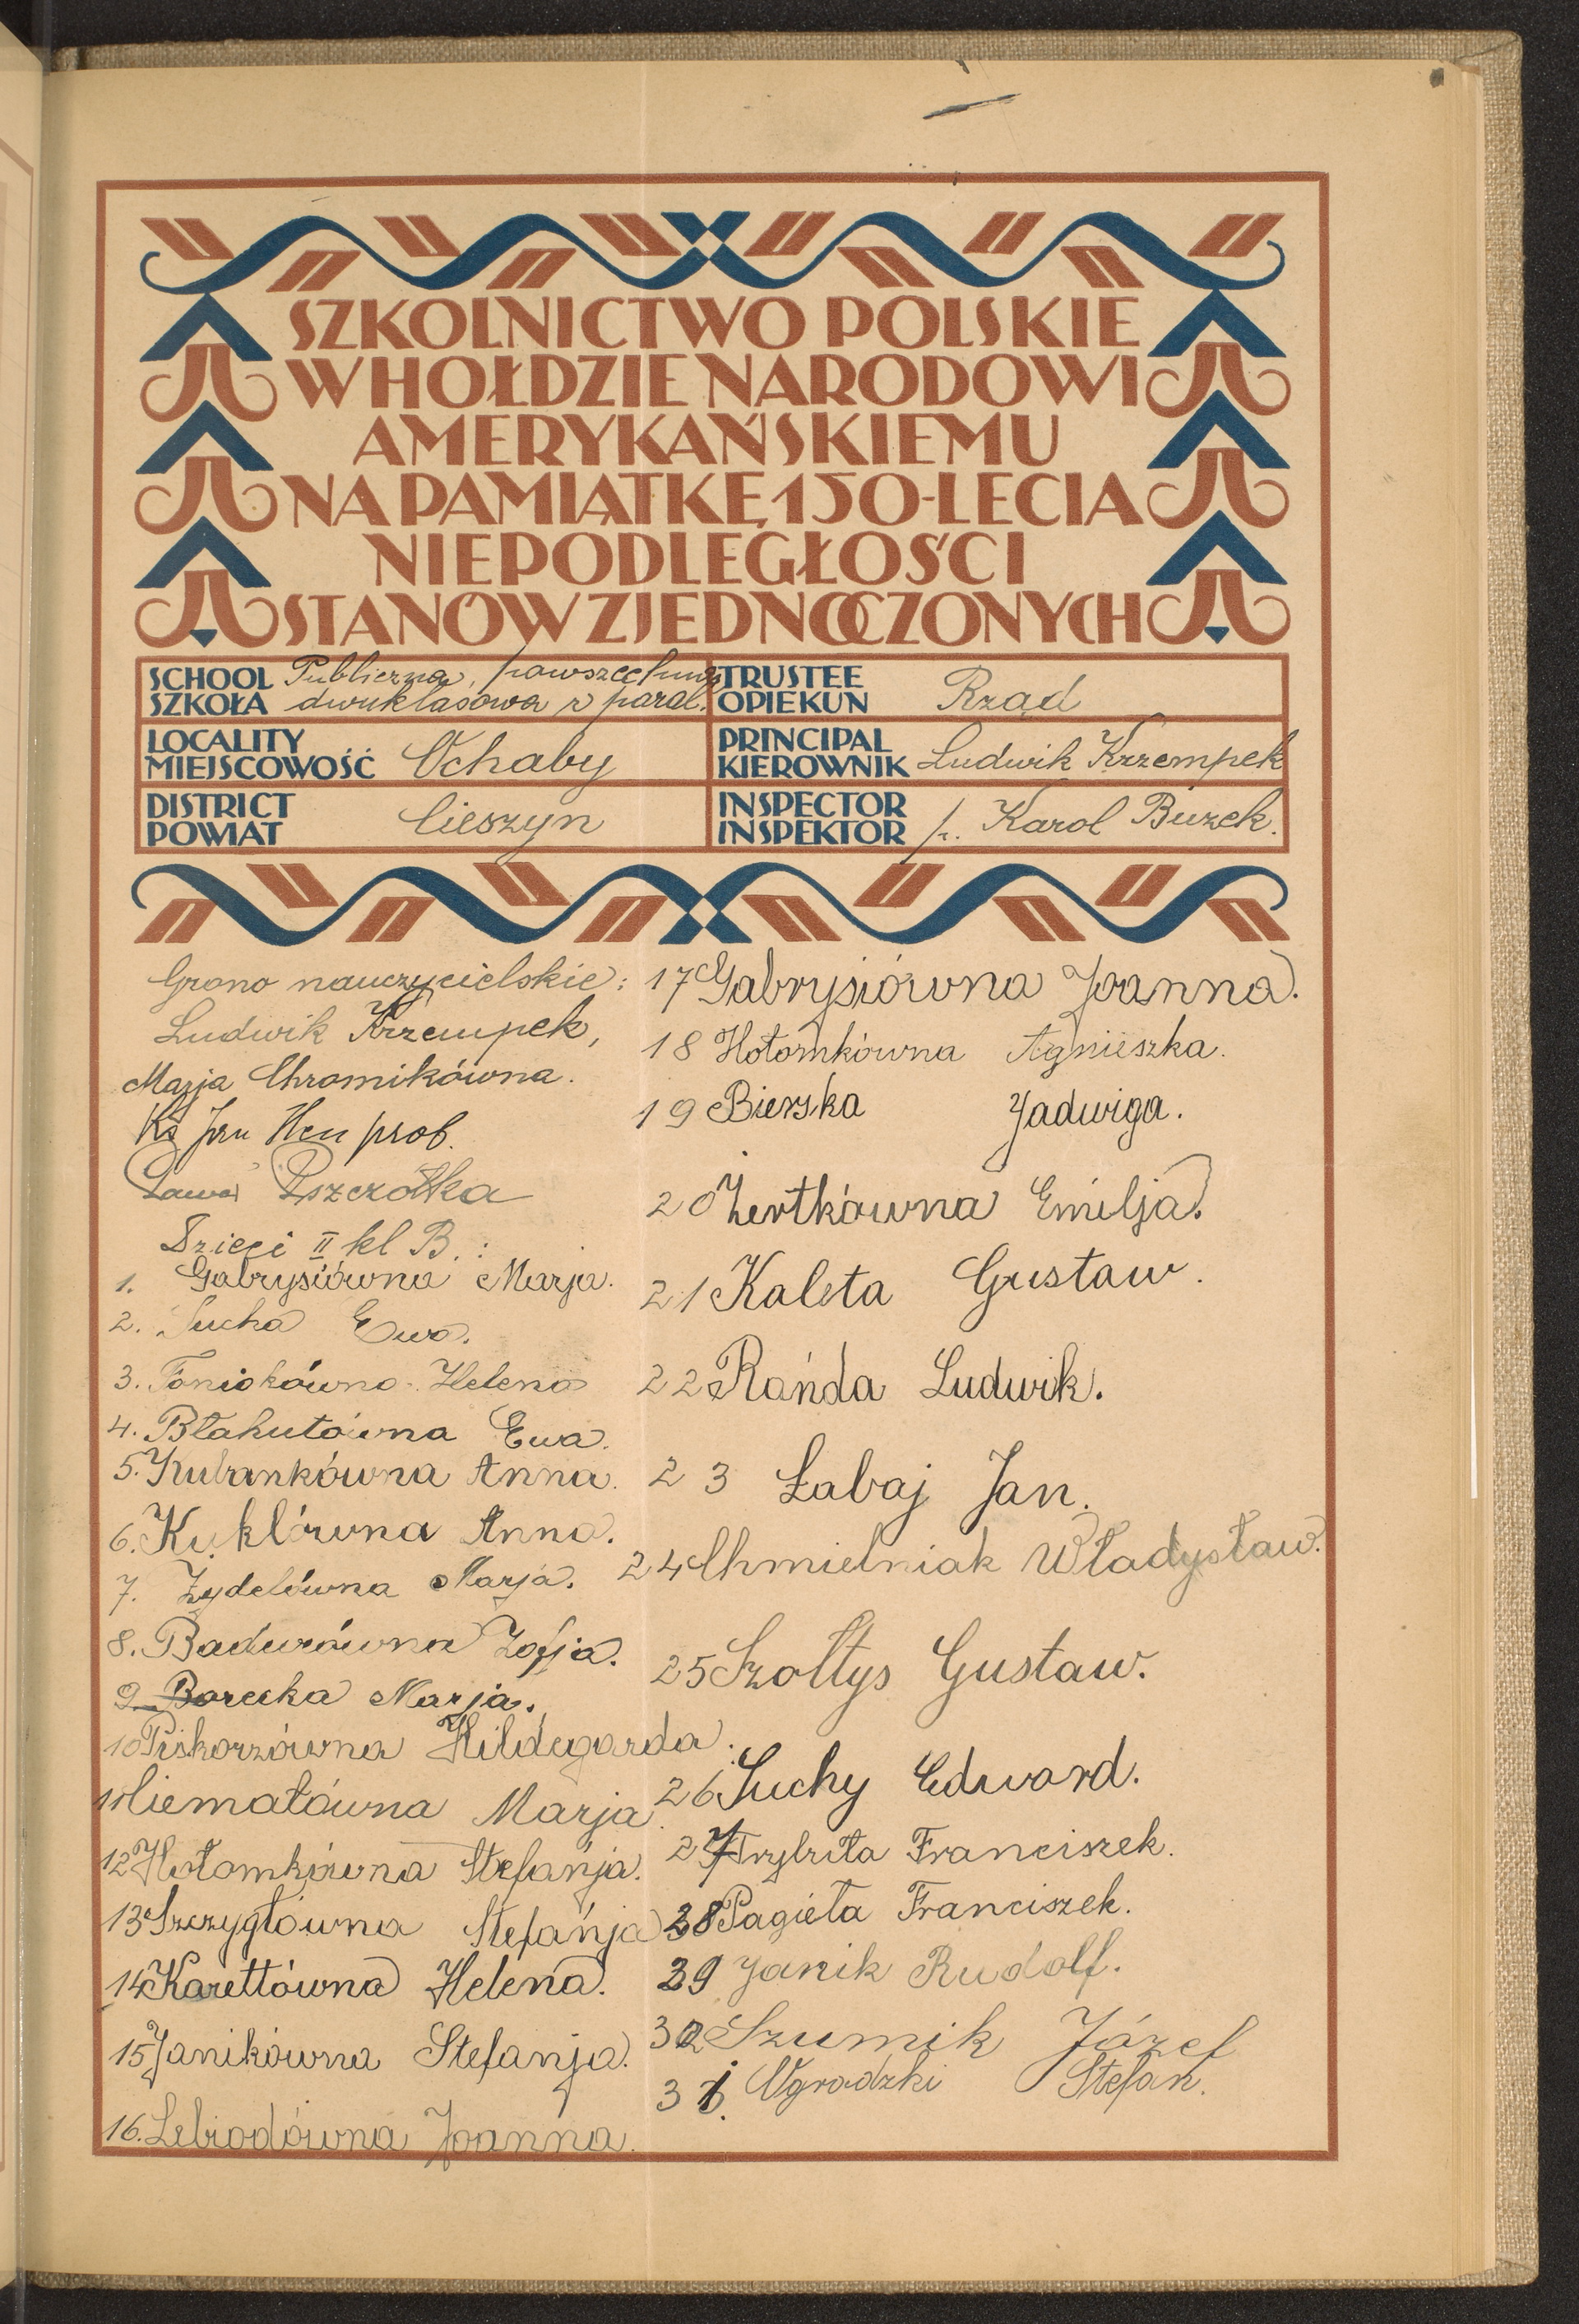 SZKOLNICTWO POLSKIE
W HOŁDZIE NARODOWI
AMERYKAŃSKIEMU
NA PAMIĄTKĘ 150-LECIA
NIEPODLEGŁOŚCI
STANÓW ZJEDNOCZONYCH
SCHOOL
SZKOŁA
Publiczna, powszechna
dwuklasowa z paral.
TRUSTEE
OPIEKUN
Rząd
LOCALITY
MIEJSCOWOŚĆ
Ochaby
PRINCIPAL
KIEROWNIK
Ludwik Krzempek
DISTRICT
POWIAT
Cieszyn
INSPECTOR
INSPEKTOR
p. Karol Buzek.
Grono nauczycielskie:
Ludwik Krzempek,
Marja Chromikówna.
Ks Jan prob.
Paweł Pszczółka
Dzieci II kl B.:
1. Gabrysiówna Marja.
2. Sucha Ewa.
3. Foniokówna Helena
4. Błahutówna Ewa.
5. Kubankówna Anna.
6. Kuklówna Anna.
7. Żydelówna Marja.
8. Badurówna Zofja.
9 Borecka Marja.
10 Piskorzówna Hildegarda.
11 Ciemałówna Marja.
12 Hotomkówna Stefanja.
13 Szczygłówna Stefanja
14 Karettówna Helena.
15 Janikówna Stefanja.
16. Lebiodówna Joanna.
17 Gabrysiówna Joanna.
18 Hotomkówna Agnieszka.
19 Bierska Jadwiga.
20 Żertkówna Emilja.
21 Kaleta Gustaw.
22 Rańda Ludwik.
23 Łabaj Jan.
24 Chmielniak Władysław.
25 Szołtys Gustaw.
26 Suchy Edward.
27 Franciszek.
28 Pagieła Franciszek.
29 Janik Rudolf.
30 Szumik Józef
31. Ogrodzki Stefan.